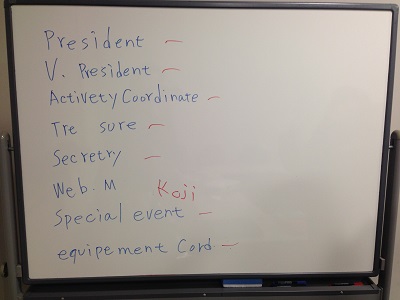 President —
V. President —
Activety Coordinate —
Tre sure —
Secretry —
Web. M Koji
Special event —
equipement Cord —